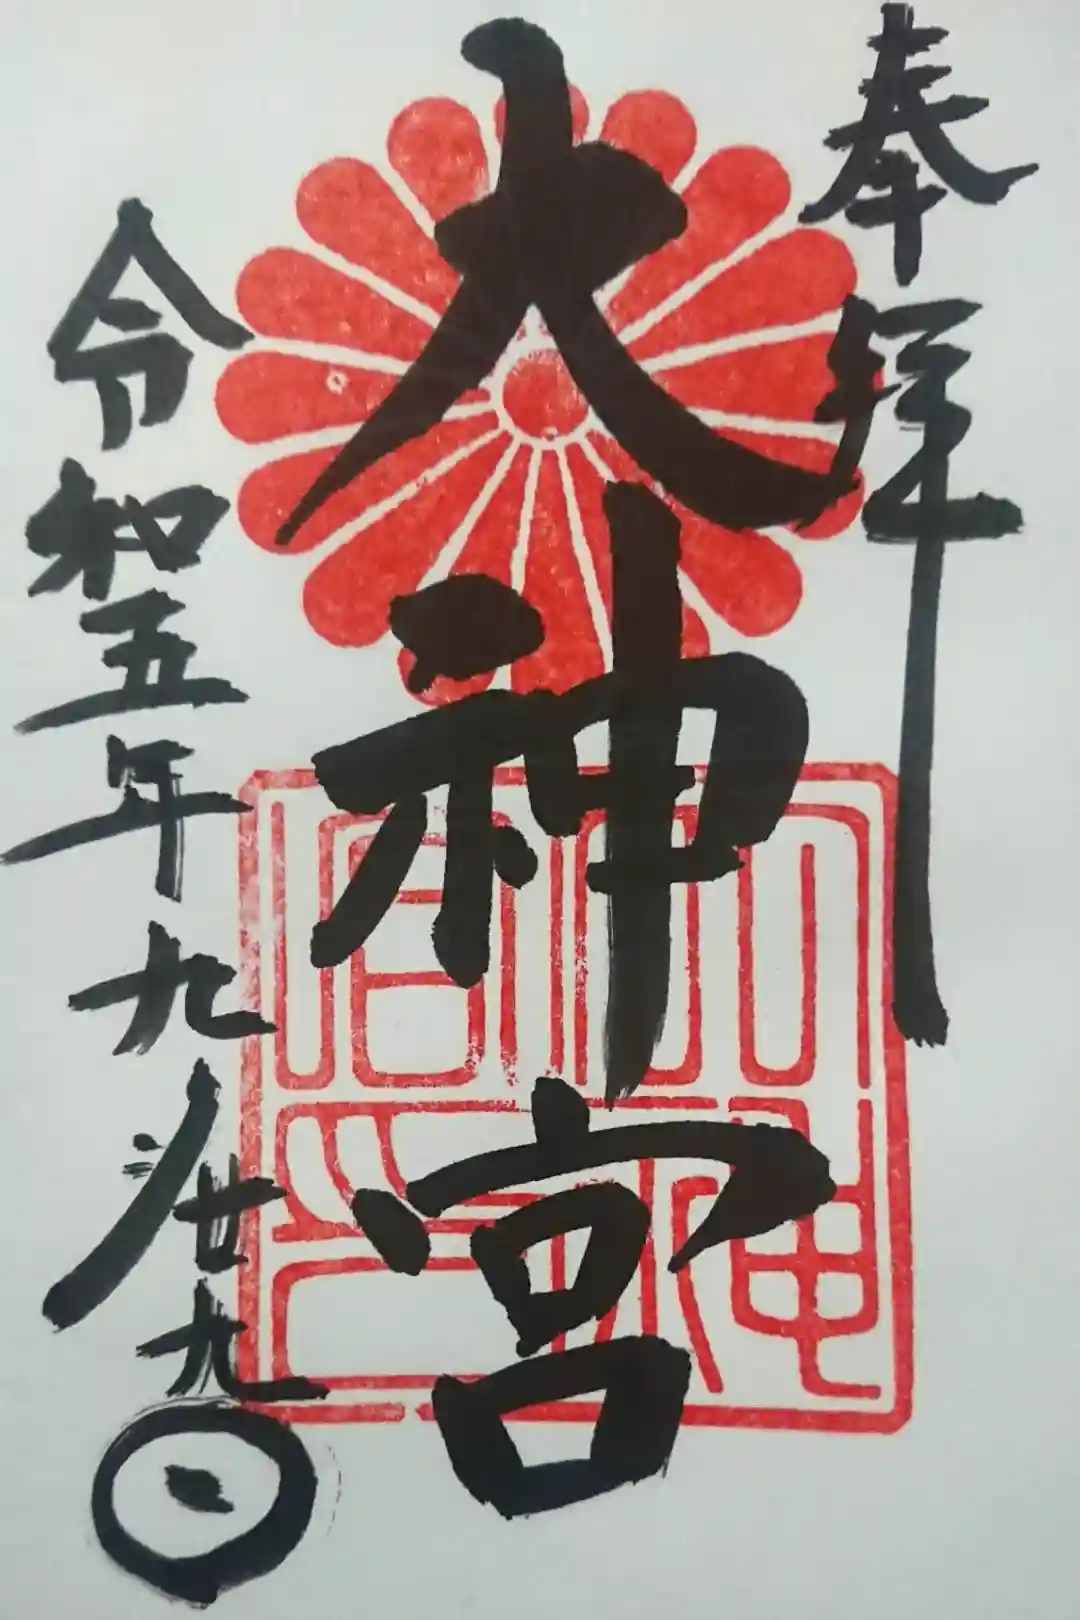 奉拝
大神宮
令和五年九月廿九日